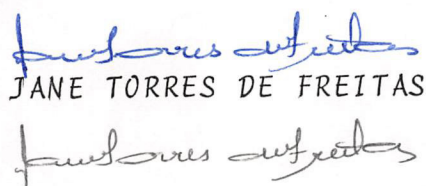 Jane Torres de Freitas
JANE TORRES DE FREITAS
Jane Torres de Freitas